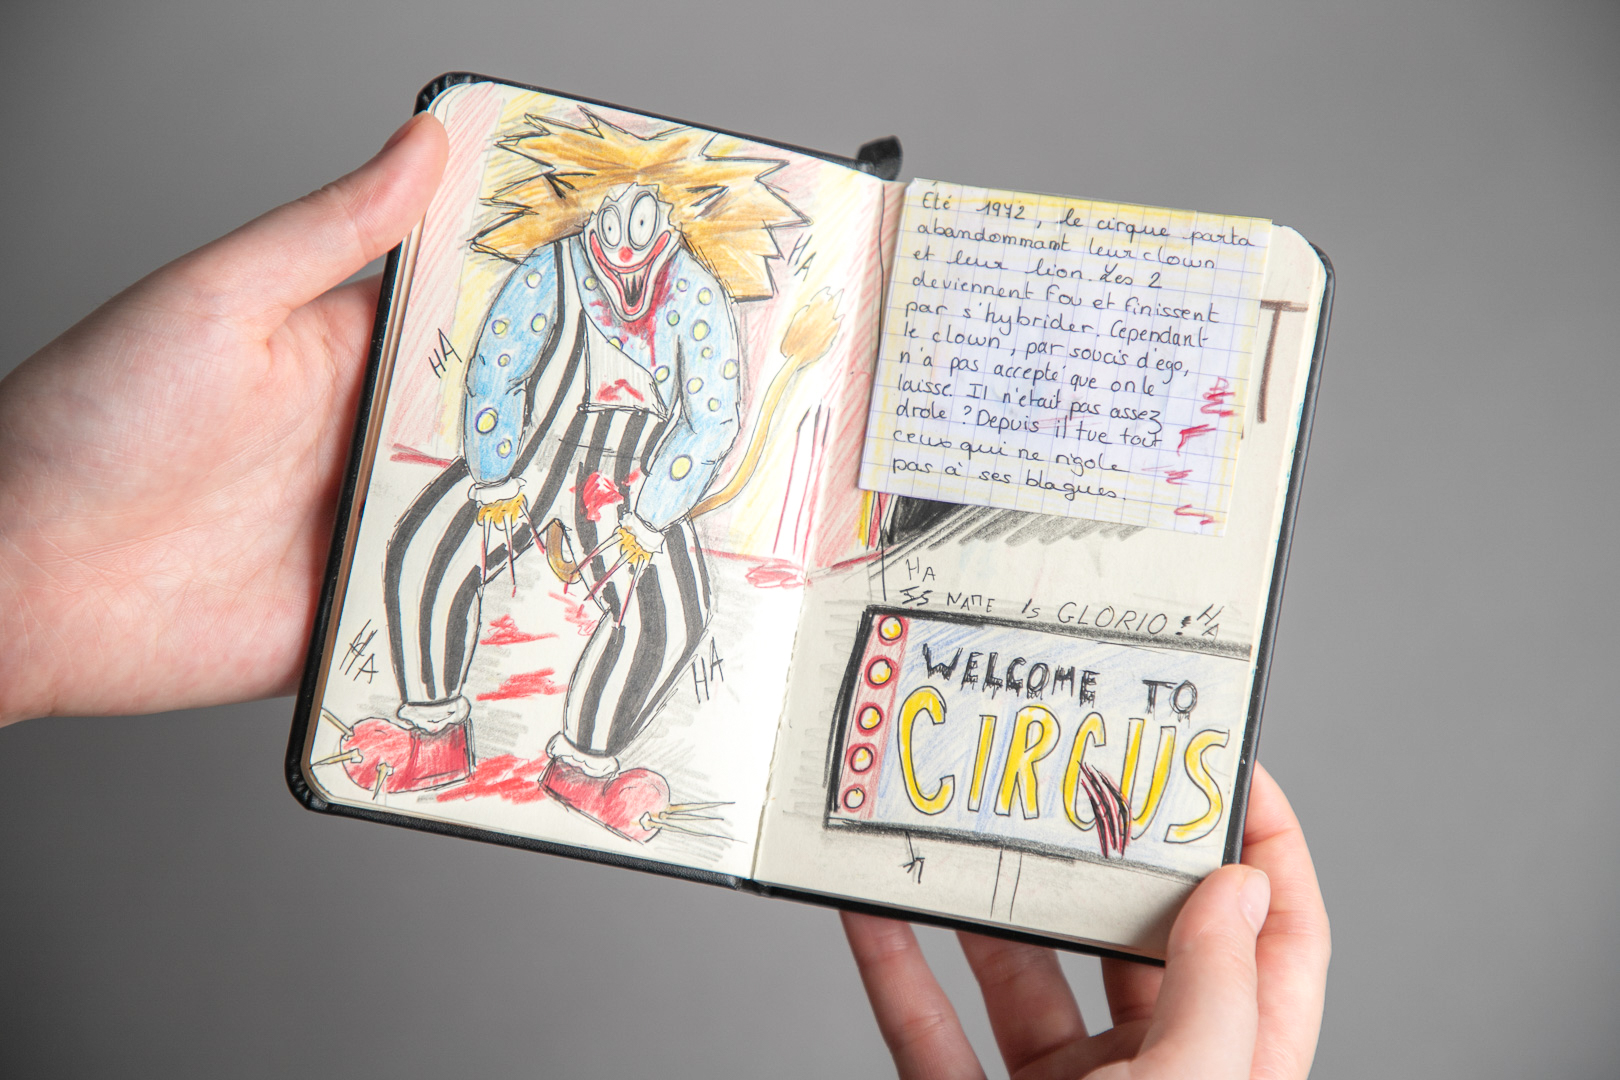 HA
HA
HA
HA
Été 1972, le cirque parta
abandonnant leur clown
et leur lion. Les 2
deviennent fou et finissent
par s'hybrider. Cependant
le clown, par soucis d'ego,
n'a pas accepté que on le
laisse. Il n'était pas assez
drole ? Depuis il tue tout
ceux qui ne rigole
pas à ses blagues.
HA
NAME is GLORIO !
HA
WELCOME TO
CIRCUS